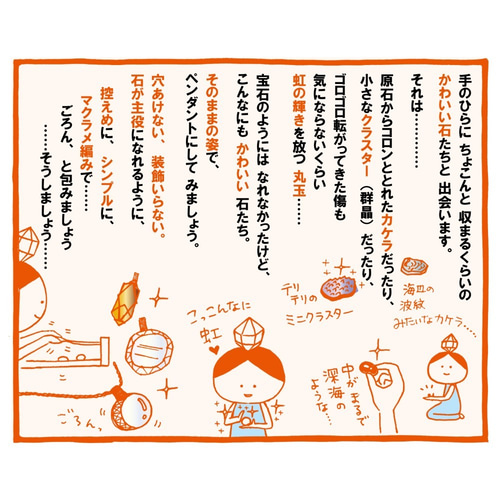 手のひらに ちょこんと 収まるくらいの
かわいい石たちと 出会います。
それは……
原石からコロンととれたカケラだったり、
小さなクラスター（群晶）だったり、
ゴロゴロ転がってきた傷も
気にならないくらい
虹の輝きを放つ 丸玉……
宝石のようには なれなかったけど、
こんなにも かわいい 石たち。
そのままの姿で、
ペンダントにして みましょう。
穴あけない、装飾いらない。
石が主役になれるように、
控えめに、シンプルに、
マクラメ編みで……
ごろん、と包みましょう
……そうしましょう……
海面の
波紋
みたいなカケラ…
テリ
テリの
ミニクラスター
中がまるで
深海の
ような…
こっこんなに
虹
ごろんっ